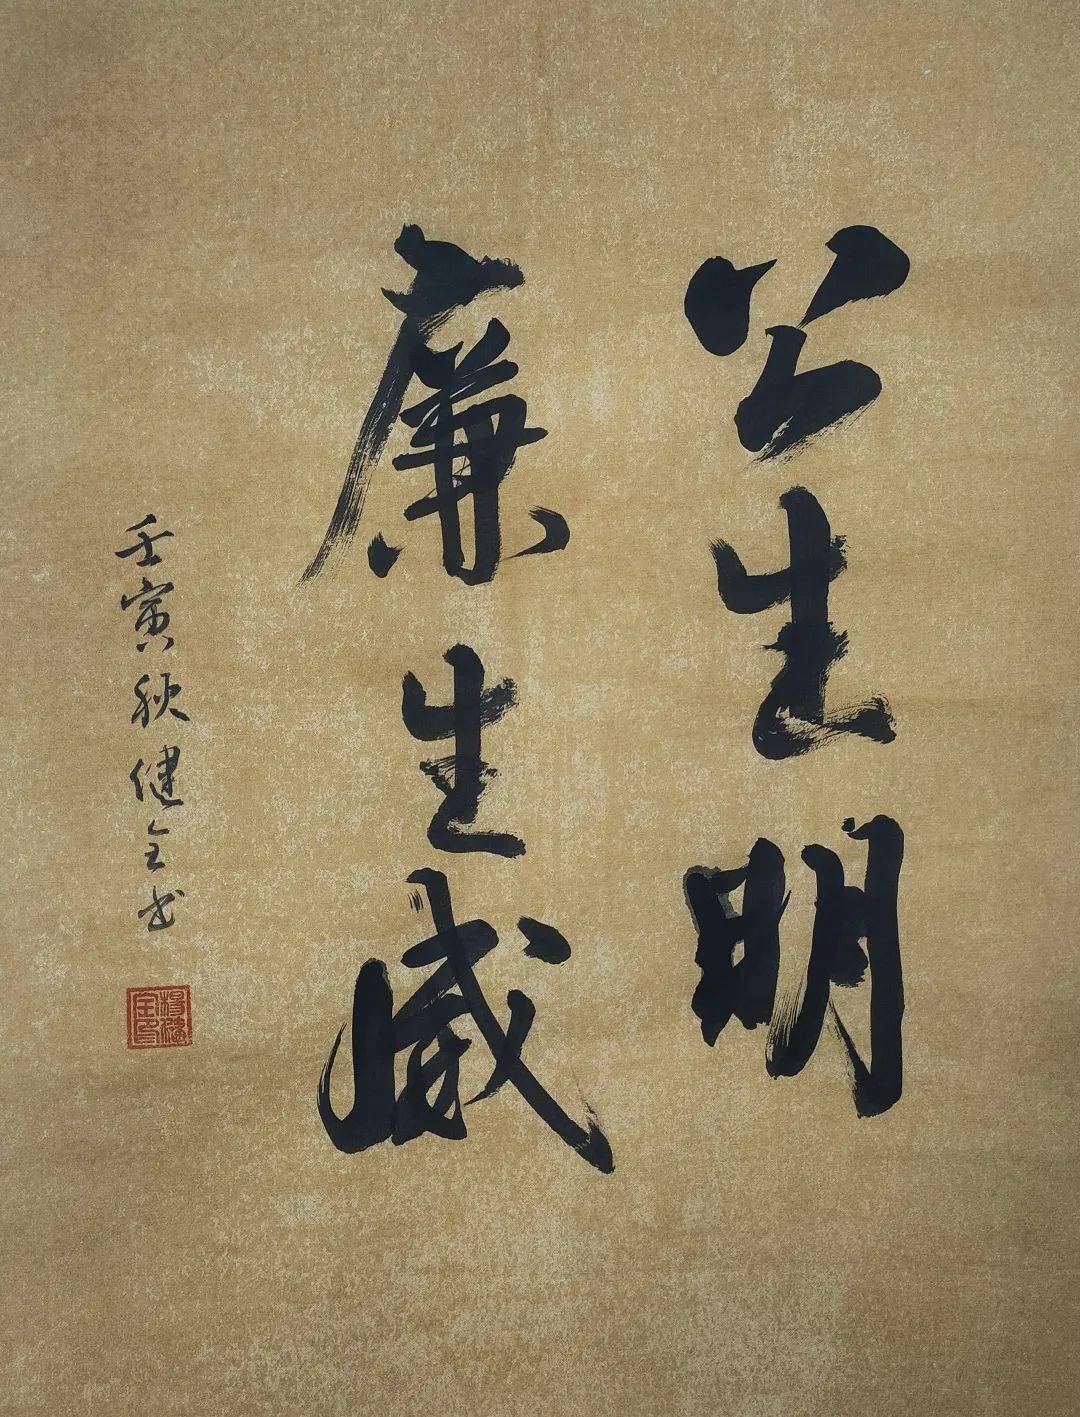 公生明
廉生威
壬寅秋健全书